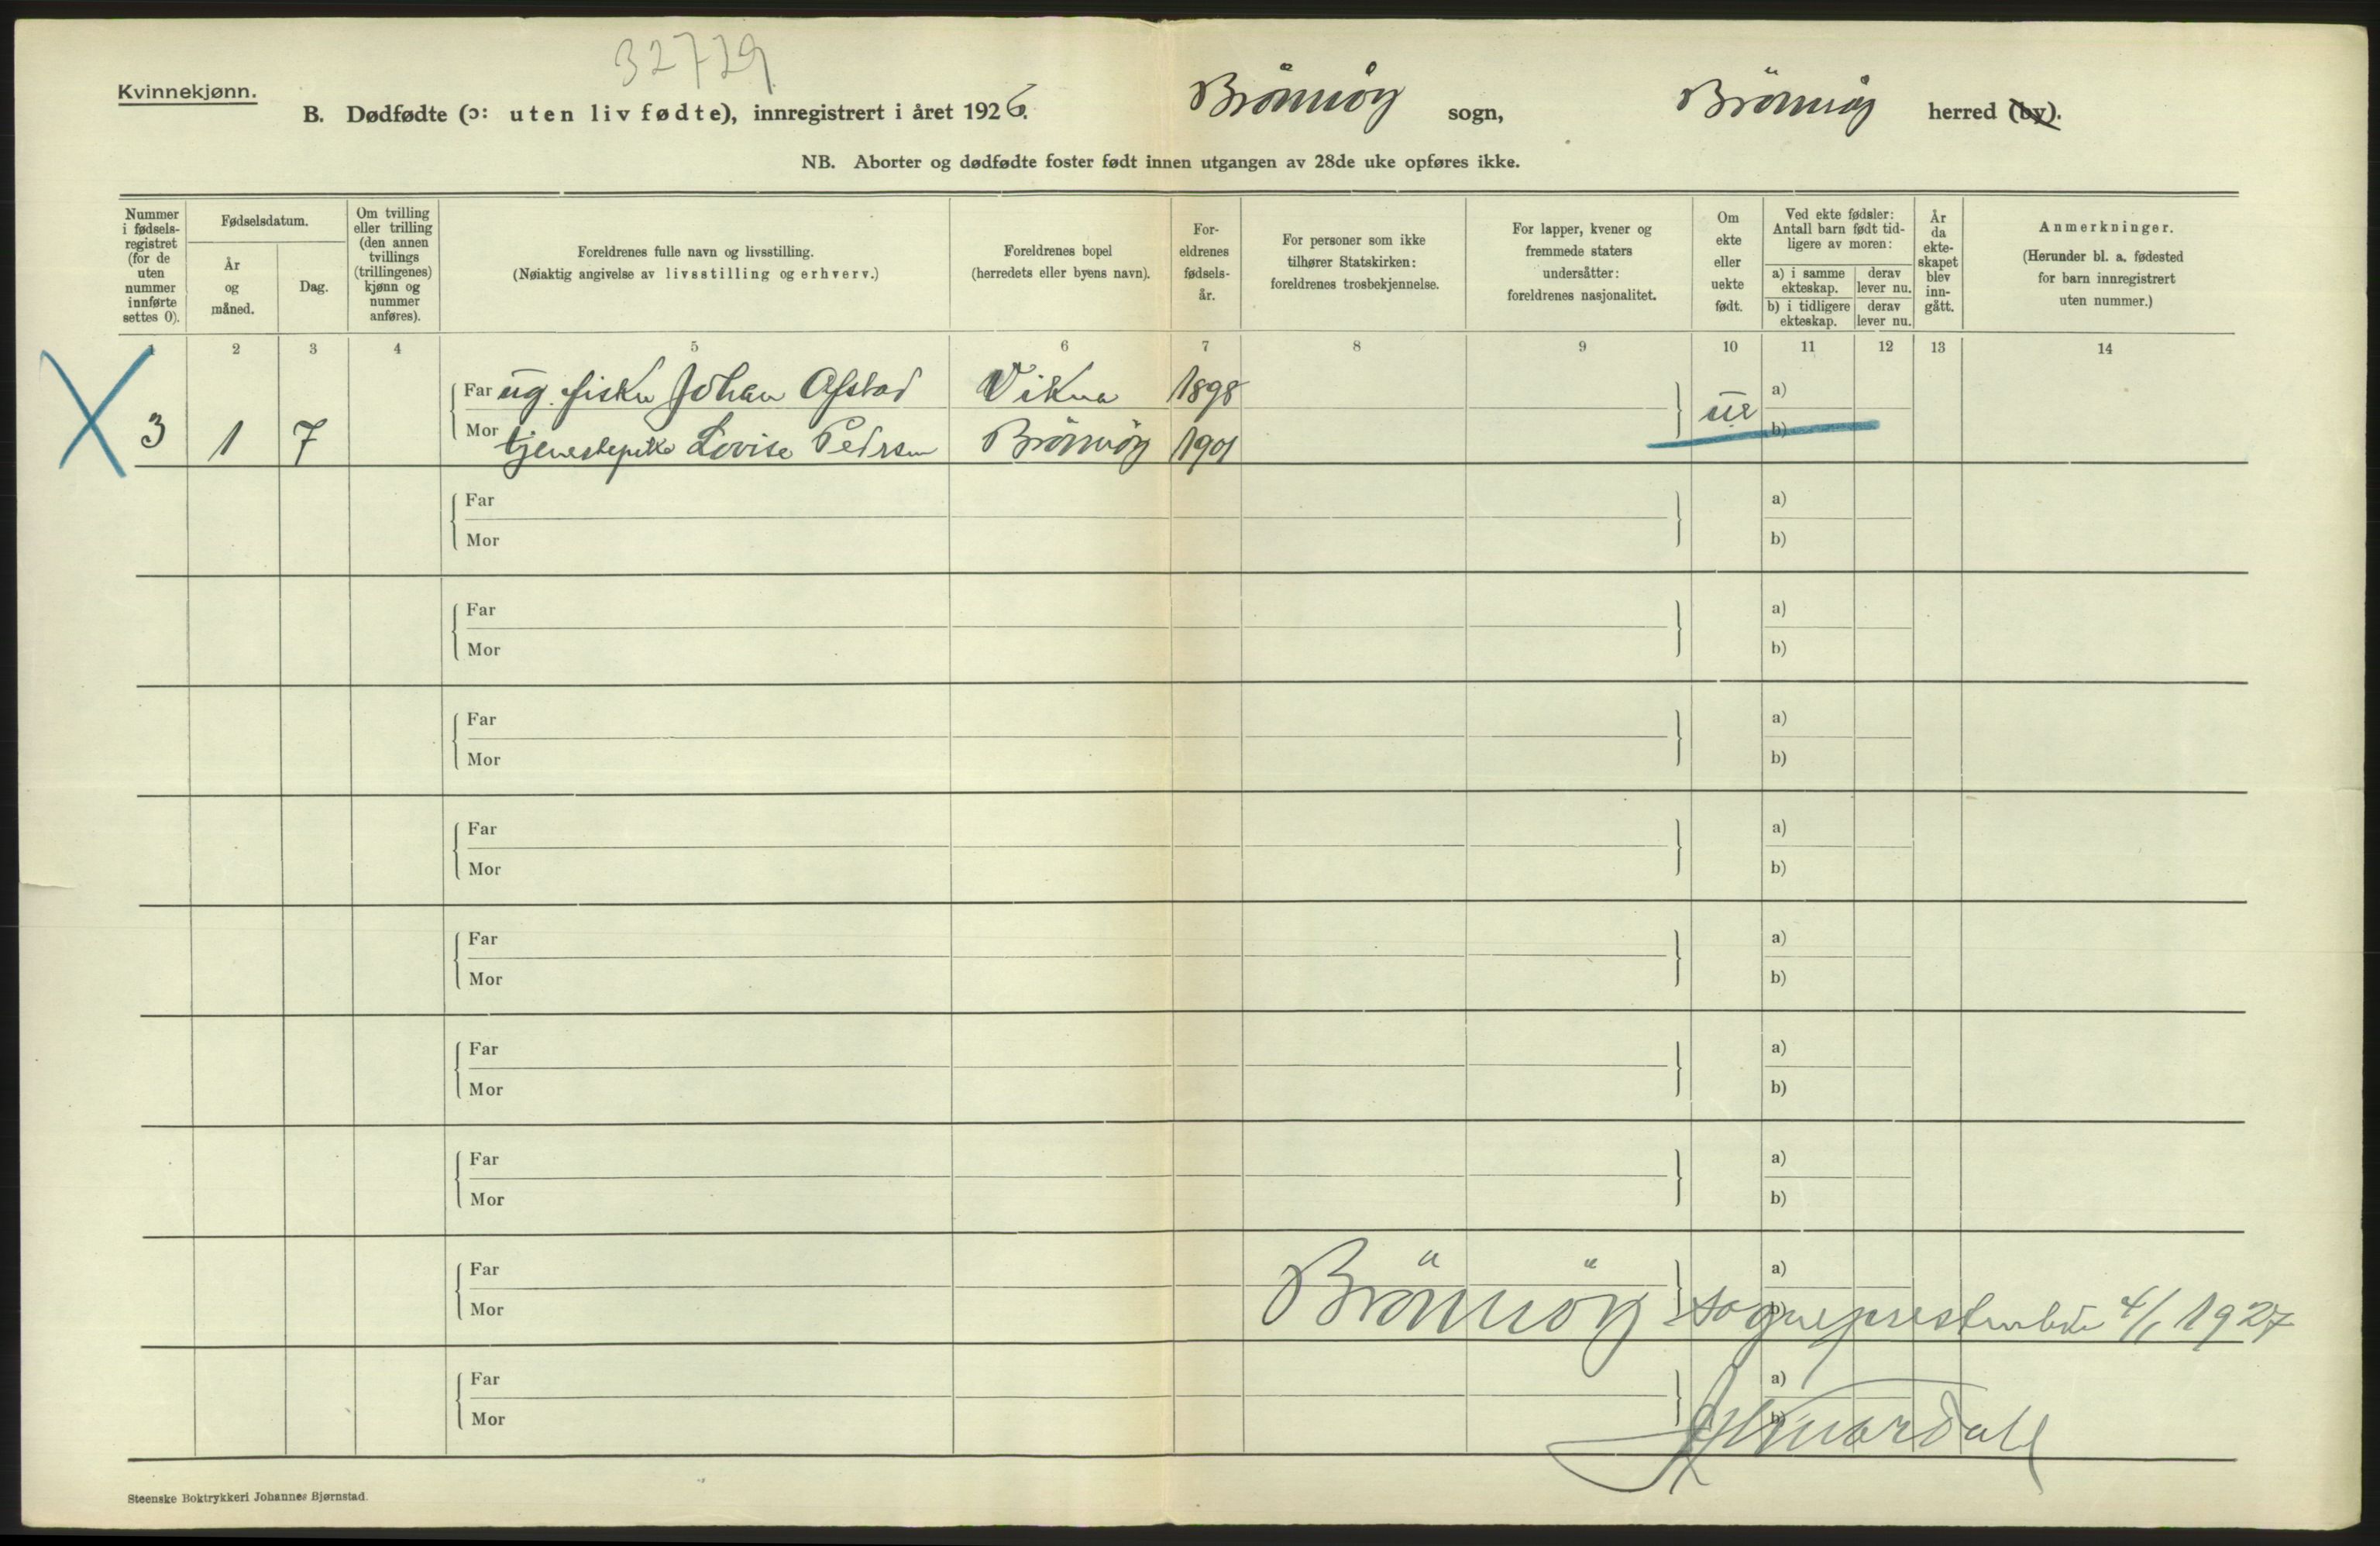 32729
Kvinnekjønn.
B. Dødfødte (ɔ: uten liv fødte), innregistrert i året 1926. Brönnöy sogn, Brönnöy herred (by).
NB. Aborter og dødfødte foster født innen utgangen av 28de uke opføres ikke.
Nummer i fødsels-registret (for de uten nummer innførte settes 0).
Fødselsdatum.
År og måned.
Dag.
Om tvilling eller trilling (den annen tvillings (trillingenes) kjønn og nummer anføres).
Foreldrenes fulle navn og livsstilling.
(Nøiaktig angivelse av livsstilling og erhverv.)
Foreldrenes bopel
(herredets eller byens navn).
For-eldrenes fødsels-år.
For personer som ikke tilhører Statskirken: foreldrenes trosbekjennelse.
For lapper, kvener og fremmede staters undersåtter: foreldrenes nasjonalitet.
Om ekte eller uekte født.
Ved ekte fødsler: Antall barn født tid-ligere av moren:
a) i samme ekteskap.
derav lever nu.
b) i tidligere ekteskap.
derav lever nu.
År da ekte-skapet blev inn-gått.
Anmerkninger.
(Herunder bl. a. fødested for barn innregistrert uten nummer.)
1 2 3 4 5 6 7 8 9 10 11 12 13 14
Far ug. fisker Johan Ofstad Vikna 1898 a)
3 1 7 ue
Mor tjenestepike Lovise Pedersen Brönnöy 1901 b)
Far a)
Mor b)
Far a)
Mor b)
Far a)
Mor b)
Far a)
Mor b)
Far a)
Mor b)
Far a)
Mor b)
Far a)
Mor b)
Far a)
Mor b)
Brönnöy sogneprestembede 4/1 1927
Far a)
Mor b)
Steenske Boktrykkeri Johannes Bjørnstad.